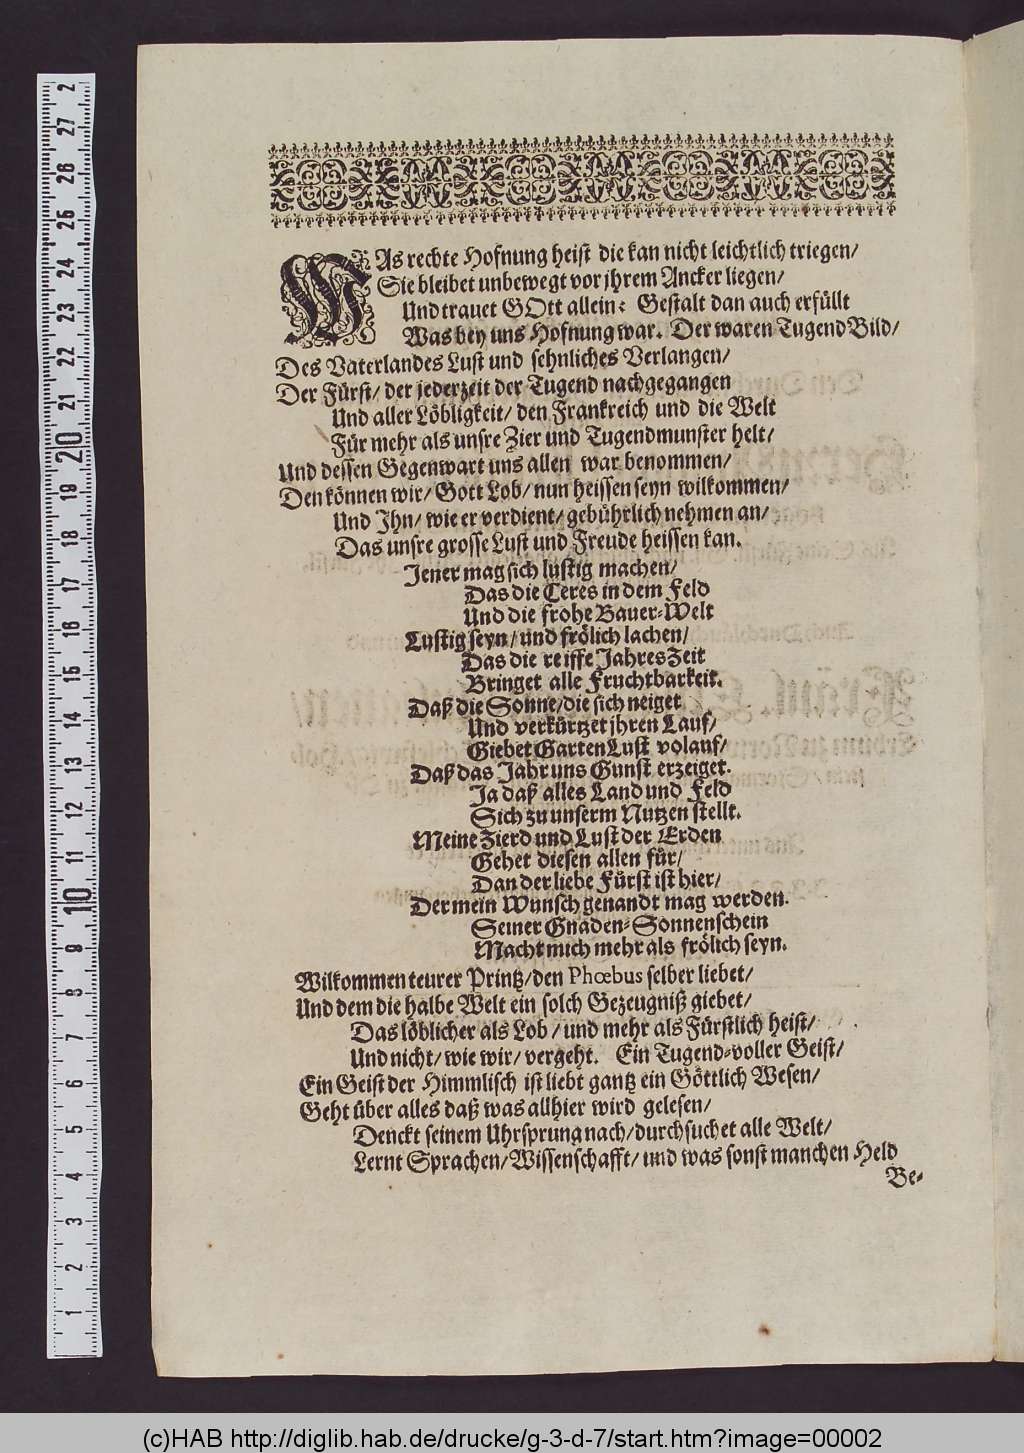 WAs rechte Hofnung heist die kan nicht leichtlich triegen/
Sie bleibet unbewegt vor jhrem Ancker liegen/
Und trauet GOtt allein: Gestalt dan auch erfüllt
Was bey uns Hofnung war. Der waren Tugend Bild/
Des Vaterlandes Lust und sehnliches Verlangen/
Der Fürst/ der jederzeit der Tugend nachgegangen
Und aller Löbligkeit/ den Frankreich und die Welt
Für mehr als unsre Zier und Tugendmunster helt/
Und dessen Gegenwart uns allen war benommen/
Den können wir/ Gott Lob/ nun heissen seyn wilkommen/
Und Ihn/ wie er verdient/ gebührlich nehmen an/
Das unsre grosse Lust und Freude heissen kan.
Jener mag sich lustig machen/
Das die Ceres in dem Feld
Und die frohe Bauer-Welt
Lustig seyn/ und frölich lachen/
Das die reiffe Jahres Zeit
Bringet alle Fruchtbarkeit.
Daß die Sonne/ die sich neiget
Und verkürtzet jhren Lauf/
Giebet Garten Lust volauf/
Daß das Jahr uns Gunst erzeiget.
Ja daß alles Land und Feld
Sich zu unserm Nutzen stellt.
Meine Zierd und Lust der Erden
Gehet diesen allen für/
Dan der liebe Fürst ist hier/
Der mein Wunsch genandt mag werden.
Seiner Gnaden-Sonnenschein
Macht mich mehr als frölich seyn.
Wilkommen teurer Printz/ den Phœbus selber liebet/
Und dem die halbe Welt ein solch Gezeugniß giebet/
Das löblicher als Lob/ und mehr als Fürstlich heist/
Und nicht/ wie wir/ vergeht. Ein Tugend-voller Geist/
Ein Geist der Himmlisch ist liebt gantz ein Göttlich Wesen/
Geht über alles daß was allhier wird gelesen/
Denckt seinem Uhrsprung nach/ durchsuchet alle Welt/
Lernt Sprachen/ Wissenschafft/ und was sonst manchen Held
Be-
2
27
26
25
24
23
22
21
20
19
18
17
16
15
14
13
12
11
10
9
8
7
6
5
4
3
2
1
(c)HAB http://diglib.hab.de/drucke/g-3-d-7/start.htm?image=00002